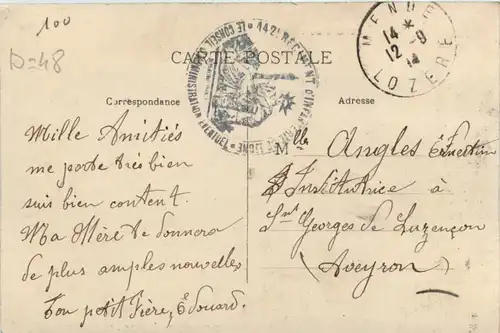 100
D=48
CARTE POSTALE
142E REGIMENT D'INFANTERIE DE LIGNE * LE CONSEIL D'ADMINISTRATION EVENTUEL *
MENDE
14 *
12 -9
14
LOZERE
Correspondance
Adresse
Mille Amitiés
me porte très bien
suis bien content.
Ma Mère te donnera
de plus amples nouvelles
Ton petit Frère, Edouard.
Mlle Angles Ernestine
Institutrice à
St Georges de Luzençon
(Aveyron)